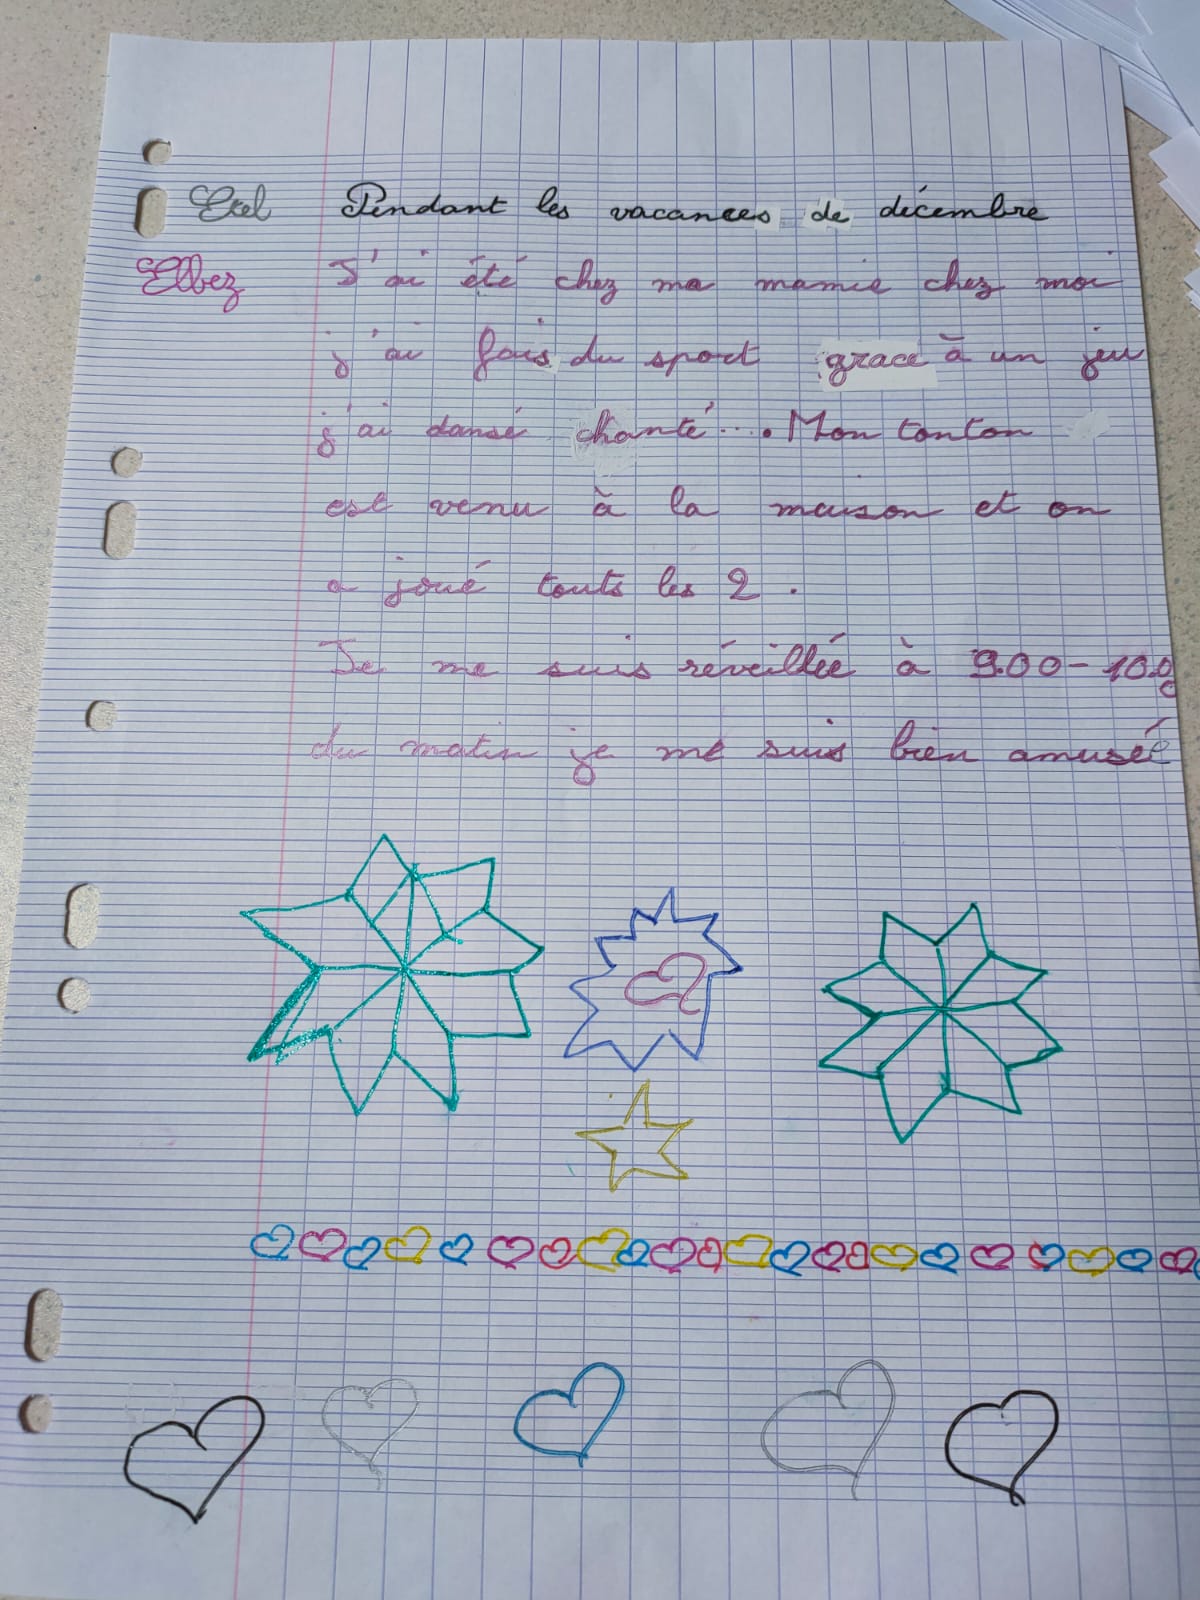 Pendant les vacances de décembre
Elbez J'ai été chez ma mamie chez moi
j'ai fais du sport grace à un jeu
j'ai dansé chanté.... Mon tonton
est venu à la maison et on
a joué touts les 2.
Je me suis réveillée à 9.00-
du matin je me suis bien amusée